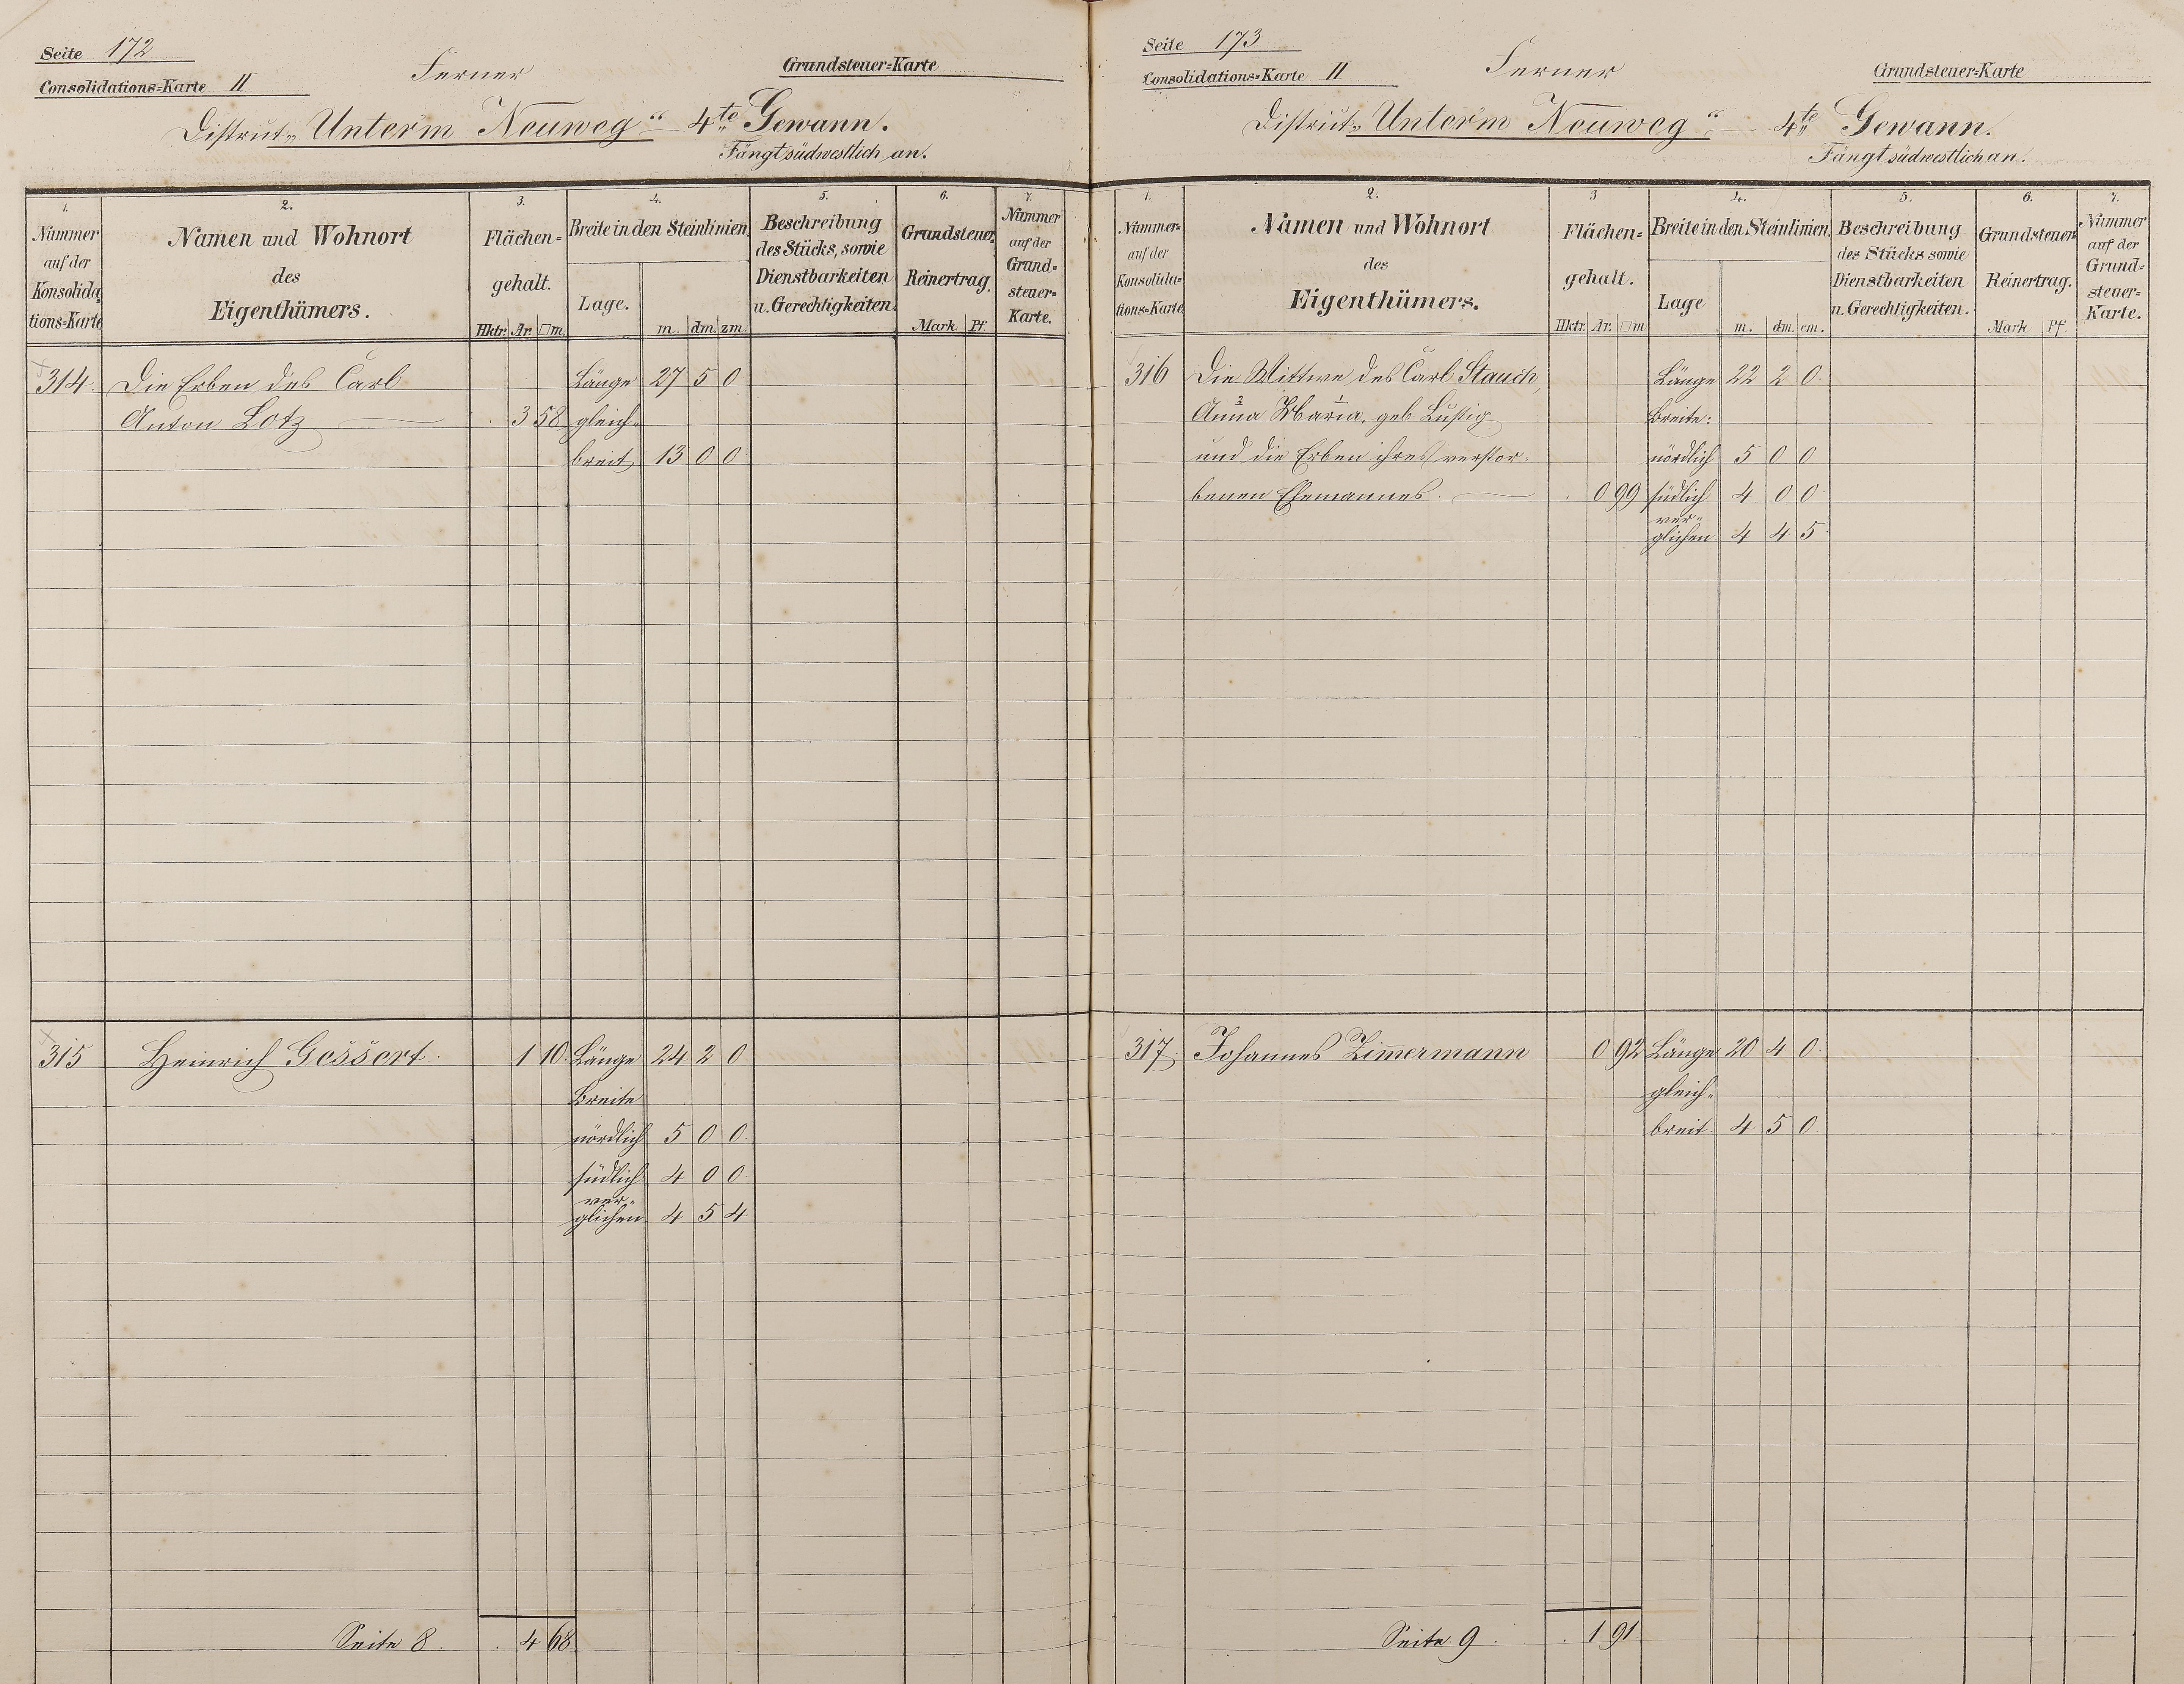 Seite 172
Consolidations=Karte II
Ferner
Grundsteuer=Karte
District „Unterm Neuweg“ 4te Gewann.
Fängt südwestlich an.
1.
Nummer
auf der
Konsolida
tions=Karte
2.
Namen und Wohnort
des
Eigenthümers.
3.
Flächen=
gehalt.
Hktr. Ar. □m.
4.
Breite in den Steinlinien
Lage.
m. dm. zm.
5.
Beschreibung
des Stücks, sowie
Dienstbarkeiten
u. Gerechtigkeiten.
6.
Grundsteuer
Reinertrag.
Mark Pf.
7.
Nummer
auf der
Grund=
steuer=
Karte.
314. Die Erben des Carl Länge 27 5 0
Anton Lotz — . 3 58 gleich=
breit 13 0 0
315 Heinrich Gessert. 1 10. Länge 24 2 0
Breite
nördlich 5 0 0.
südlich 4 0 0
ver=
glichen 4 5 4
Seite 8. . 4 68
Seite 173
Consolidations=Karte II
Ferner
Grundsteuer=Karte
District „Unterm Neuweg“ — 4te Gewann.
Fängt südwestlich an.
1.
Nummer=
auf der
Konsolida=
tions=Karte
2.
Namen und Wohnort
des
Eigenthümers.
3
Flächen=
gehalt.
Hktr. Ar. □m
4.
Breite in den Steinlinien.
Lage
m. dm. cm.
5.
Beschreibung
des Stücks sowie
Dienstbarkeiten
u. Gerechtigkeiten.
6.
Grundsteuer=
Reinertrag.
Mark Pf.
7.
Nummer
auf der
Grund=
steuer=
Karte.
316 Die Wittwe des Carl Stauch, Länge 22 2 0.
2 1
Anna Maria, geb Lustig Breite:
und die Erben ihres verstor= nördlich 5 0 0
benen Ehemannes. — . 0 99 südlich 4 0 0
ver=
glichen 4 4 5
317. Johannes Zim̄ermann 0 92 Länge 20 4 0.
gleich=
breit. 4 5 0
Seite 9. . 1 91